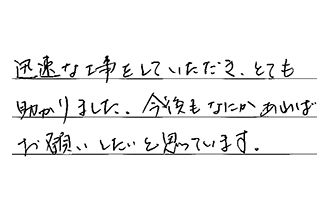 迅速な工事をしていただき、とても
助かりました。今後もなにかあれば
お願いしたいと思っています。